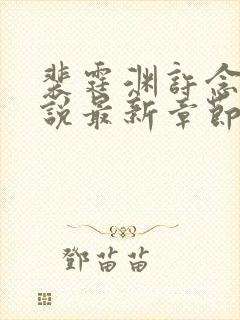 裴霆渊許念
說最新章節
鄧苗苗